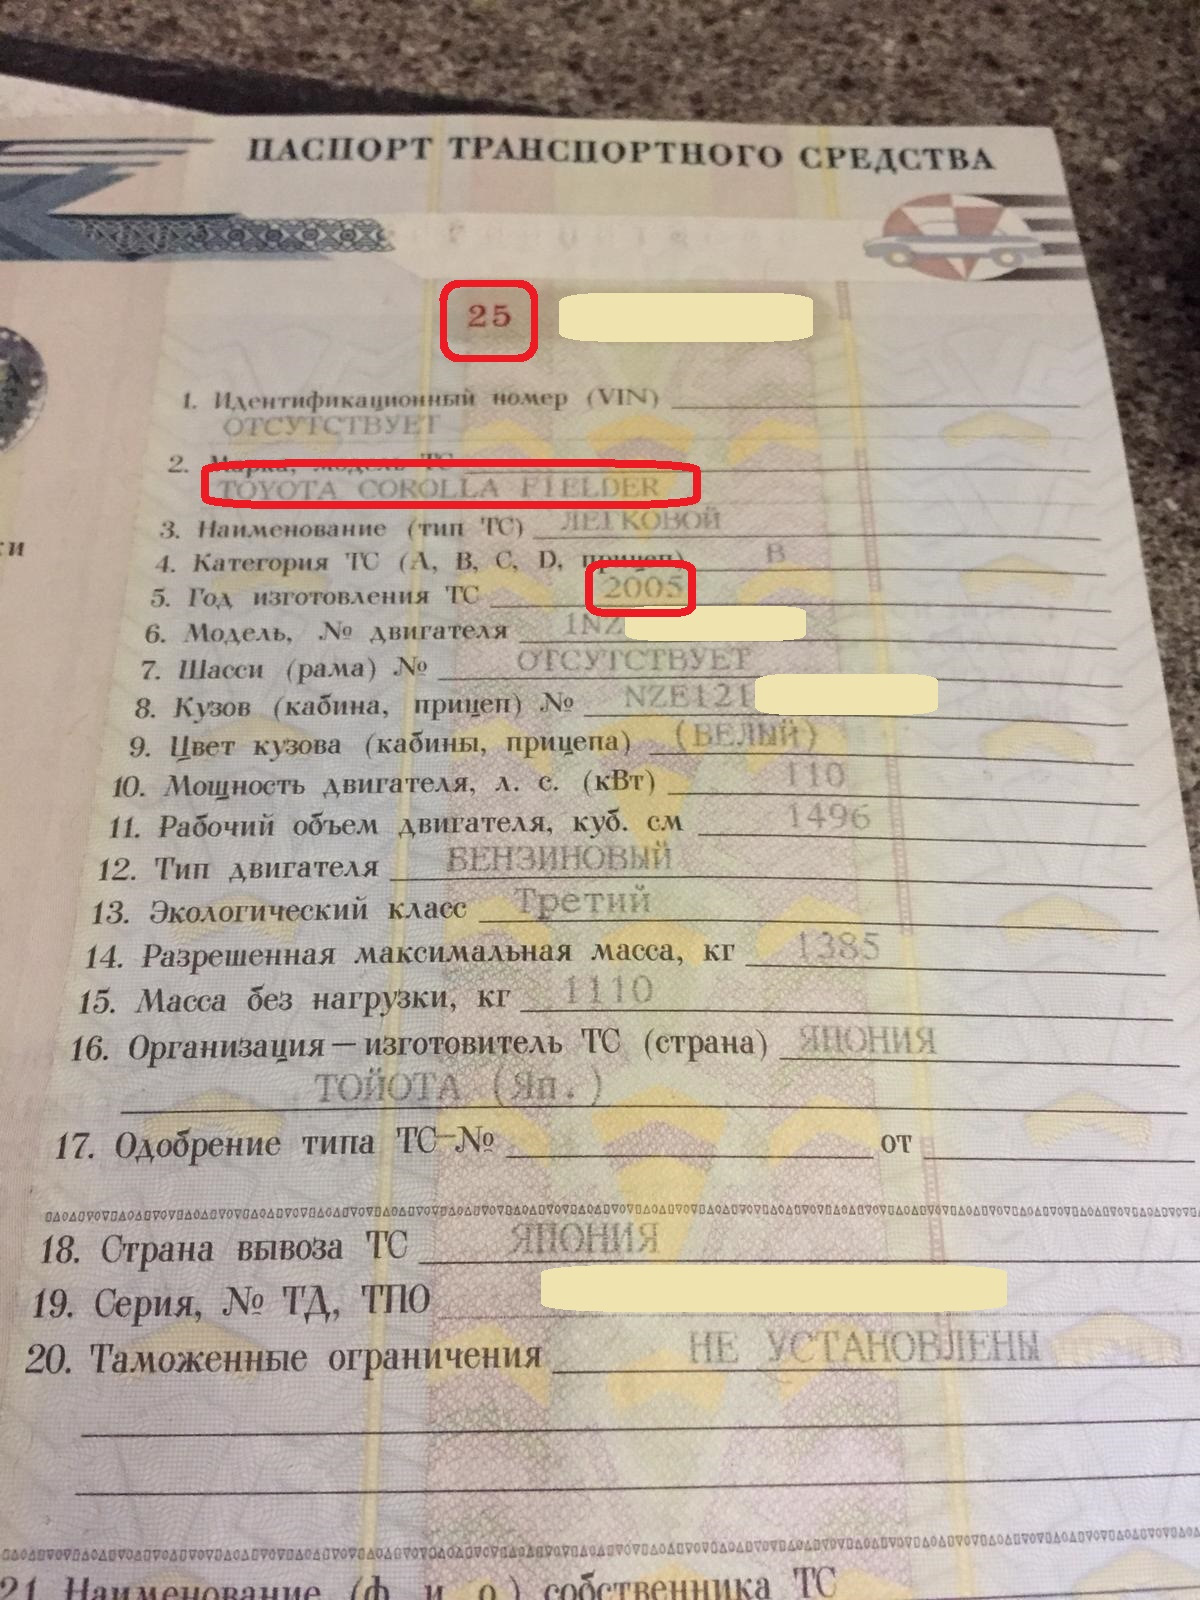 ПАСПОРТ ТРАНСПОРТНОГО СРЕДСТВА
25
1. Идентификационный номер (VIN)
ОТСУТСТВУЕТ
2. Марка, модель ТС
TOYOTA COROLLA FIELDER
3. Наименование (тип ТС) ЛЕГКОВОЙ
4. Категория ТС (А, В, С, D, прицеп) B
5. Год изготовления ТС 2005
6. Модель, № двигателя 1NZ
7. Шасси (рама) № ОТСУТСТВУЕТ
8. Кузов (кабина, прицеп) № NZE121
9. Цвет кузова (кабины, прицепа) (БЕЛЫЙ)
10. Мощность двигателя, л. с. (кВт) 110
11. Рабочий объем двигателя, куб. см 1496
12. Тип двигателя БЕНЗИНОВЫЙ
13. Экологический класс Третий
14. Разрешенная максимальная масса, кг 1385
15. Масса без нагрузки, кг 1110
16. Организация — изготовитель ТС (страна) ЯПОНИЯ
ТОЙОТА (Яп.)
17. Одобрение типа ТС № от
18. Страна вывоза ТС ЯПОНИЯ
19. Серия, № ТД, ТПО
20. Таможенные ограничения НЕ УСТАНОВЛЕНЫ
21. Наименование (ф. и. о.) собственника ТС